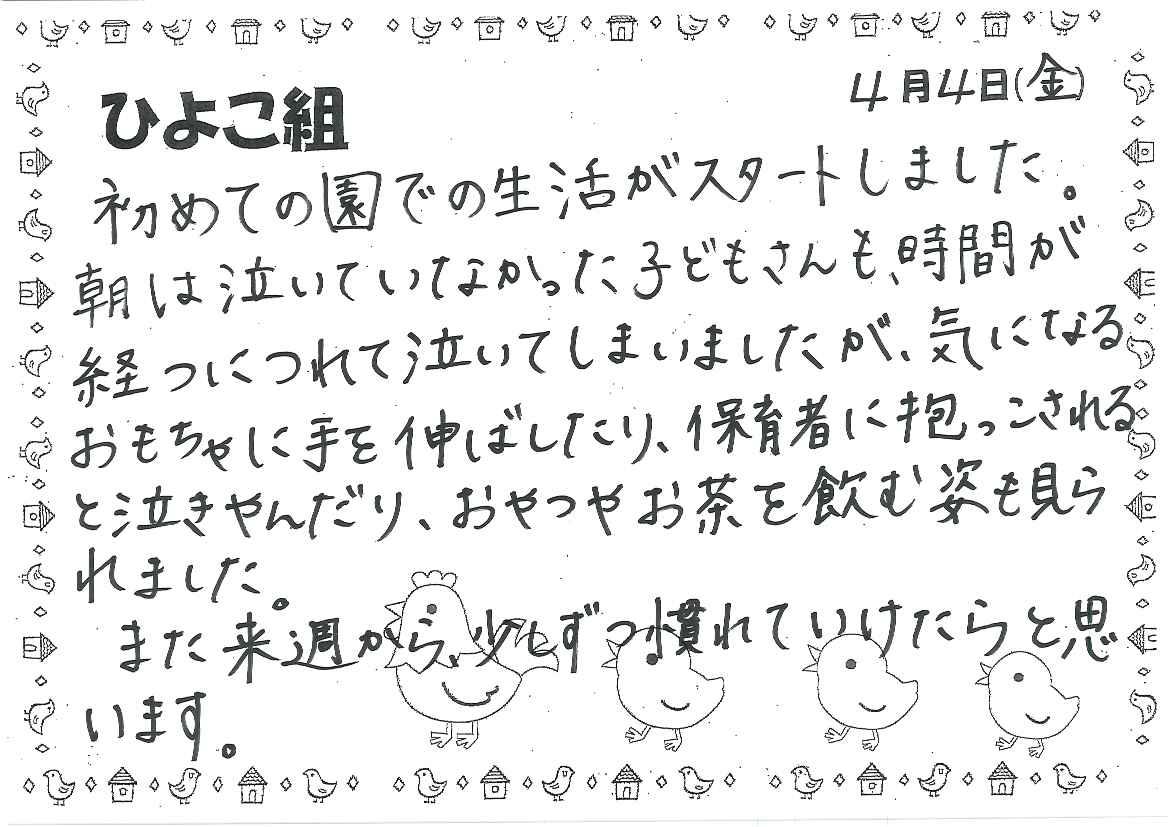 4月4日(金)
ひよこ組
初めての園での生活がスタートしました。
朝は泣いていなかった子どもさんも、時間が
経つにつれて泣いてしまいましたが、気になる
おもちゃに手を伸ばしたり、保育者に抱っこされる
と泣きやんだり、おやつやお茶を飲む姿も見ら
れました。
また来週から、少しずつ慣れていけたらと思
います。